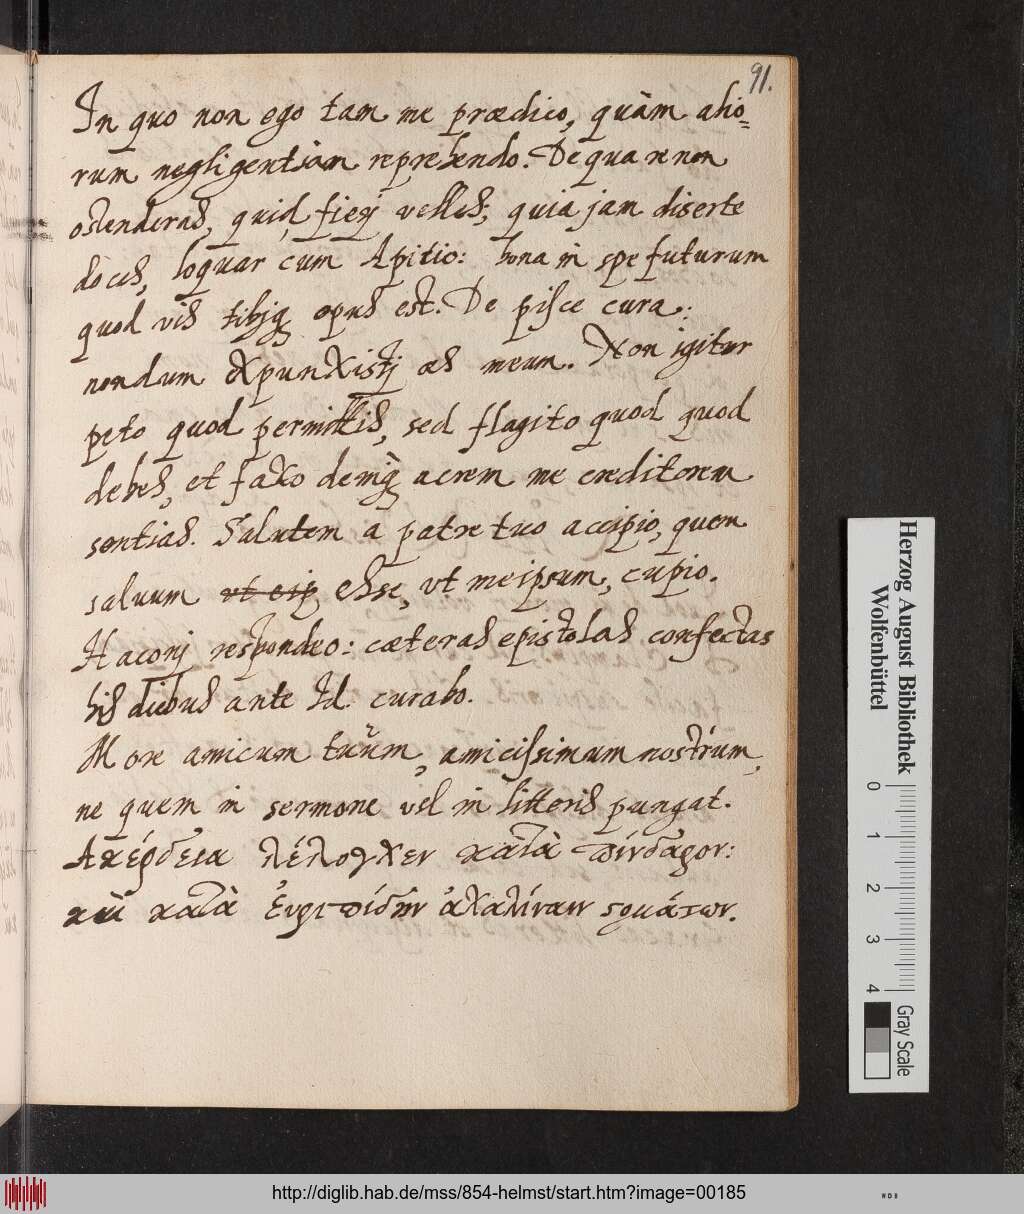 91.
In quo non ego tam me prædico, quàm alio=
rum negligentiam reprehendo. De qua re non
ostenderas, quid fierj velles; quia jam diserte
doces, loquar cum Apitio: bona in spe futurum
quod vis tibjq opus est. De pisce cura:
nondum expunxistj æs meum. Non igitur
peto quod permittis, sed flagito quod quod
debes, et faxo demq̀ acrem me creditorem
sentias. Salutem a patre tuo accipio, quem
saluum esse, vt meipsum, cupio.
Haconj respondeo: cæteras epistolas confectas
his diebus ante Id. curabo.
Mone amicum tuŭm, amicissimum nostrum,
ne quem in sermone vel in litteris pungat.
Ακέρδεια λέλογχεν κατὰ πίνδαρον:
καὶ κατὰ Ἐυριπίδην ἀχαλίνων στομάτων.
Herzog August Bibliothek
Wolfenbüttel
0 1 2 3 4
Gray Scale
http://diglib.hab.de/mss/854-helmst/start.htm?image=00185
WDB